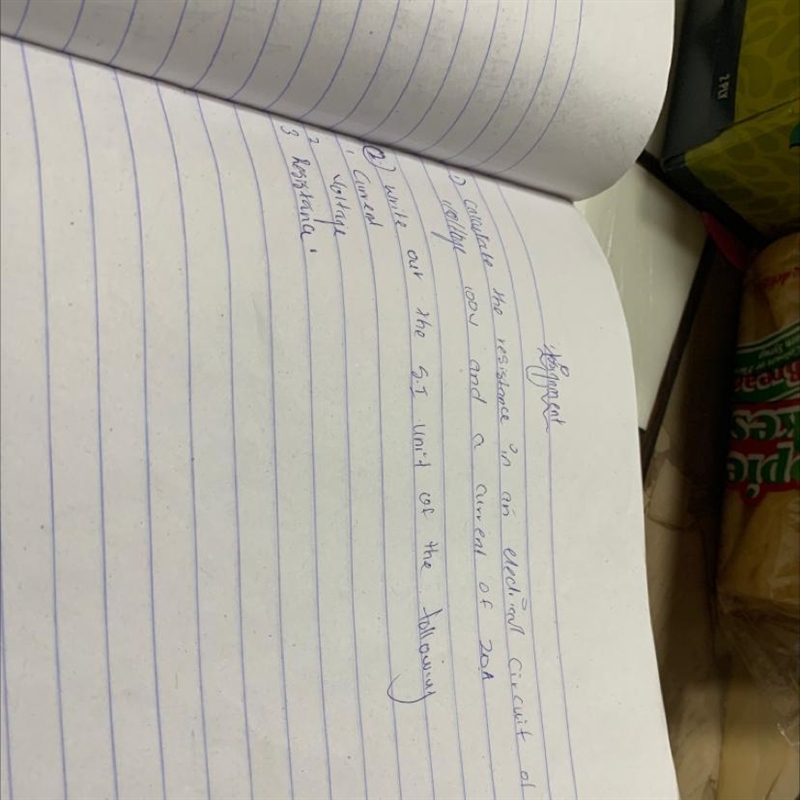 Assignment
1) Calculate the resistance in an electrical circuit of
voltage 100v and a current of 20A
2.) Write out the S.I unit of the following
1 Current
2 Voltage
3 Resistance.
2 PLY